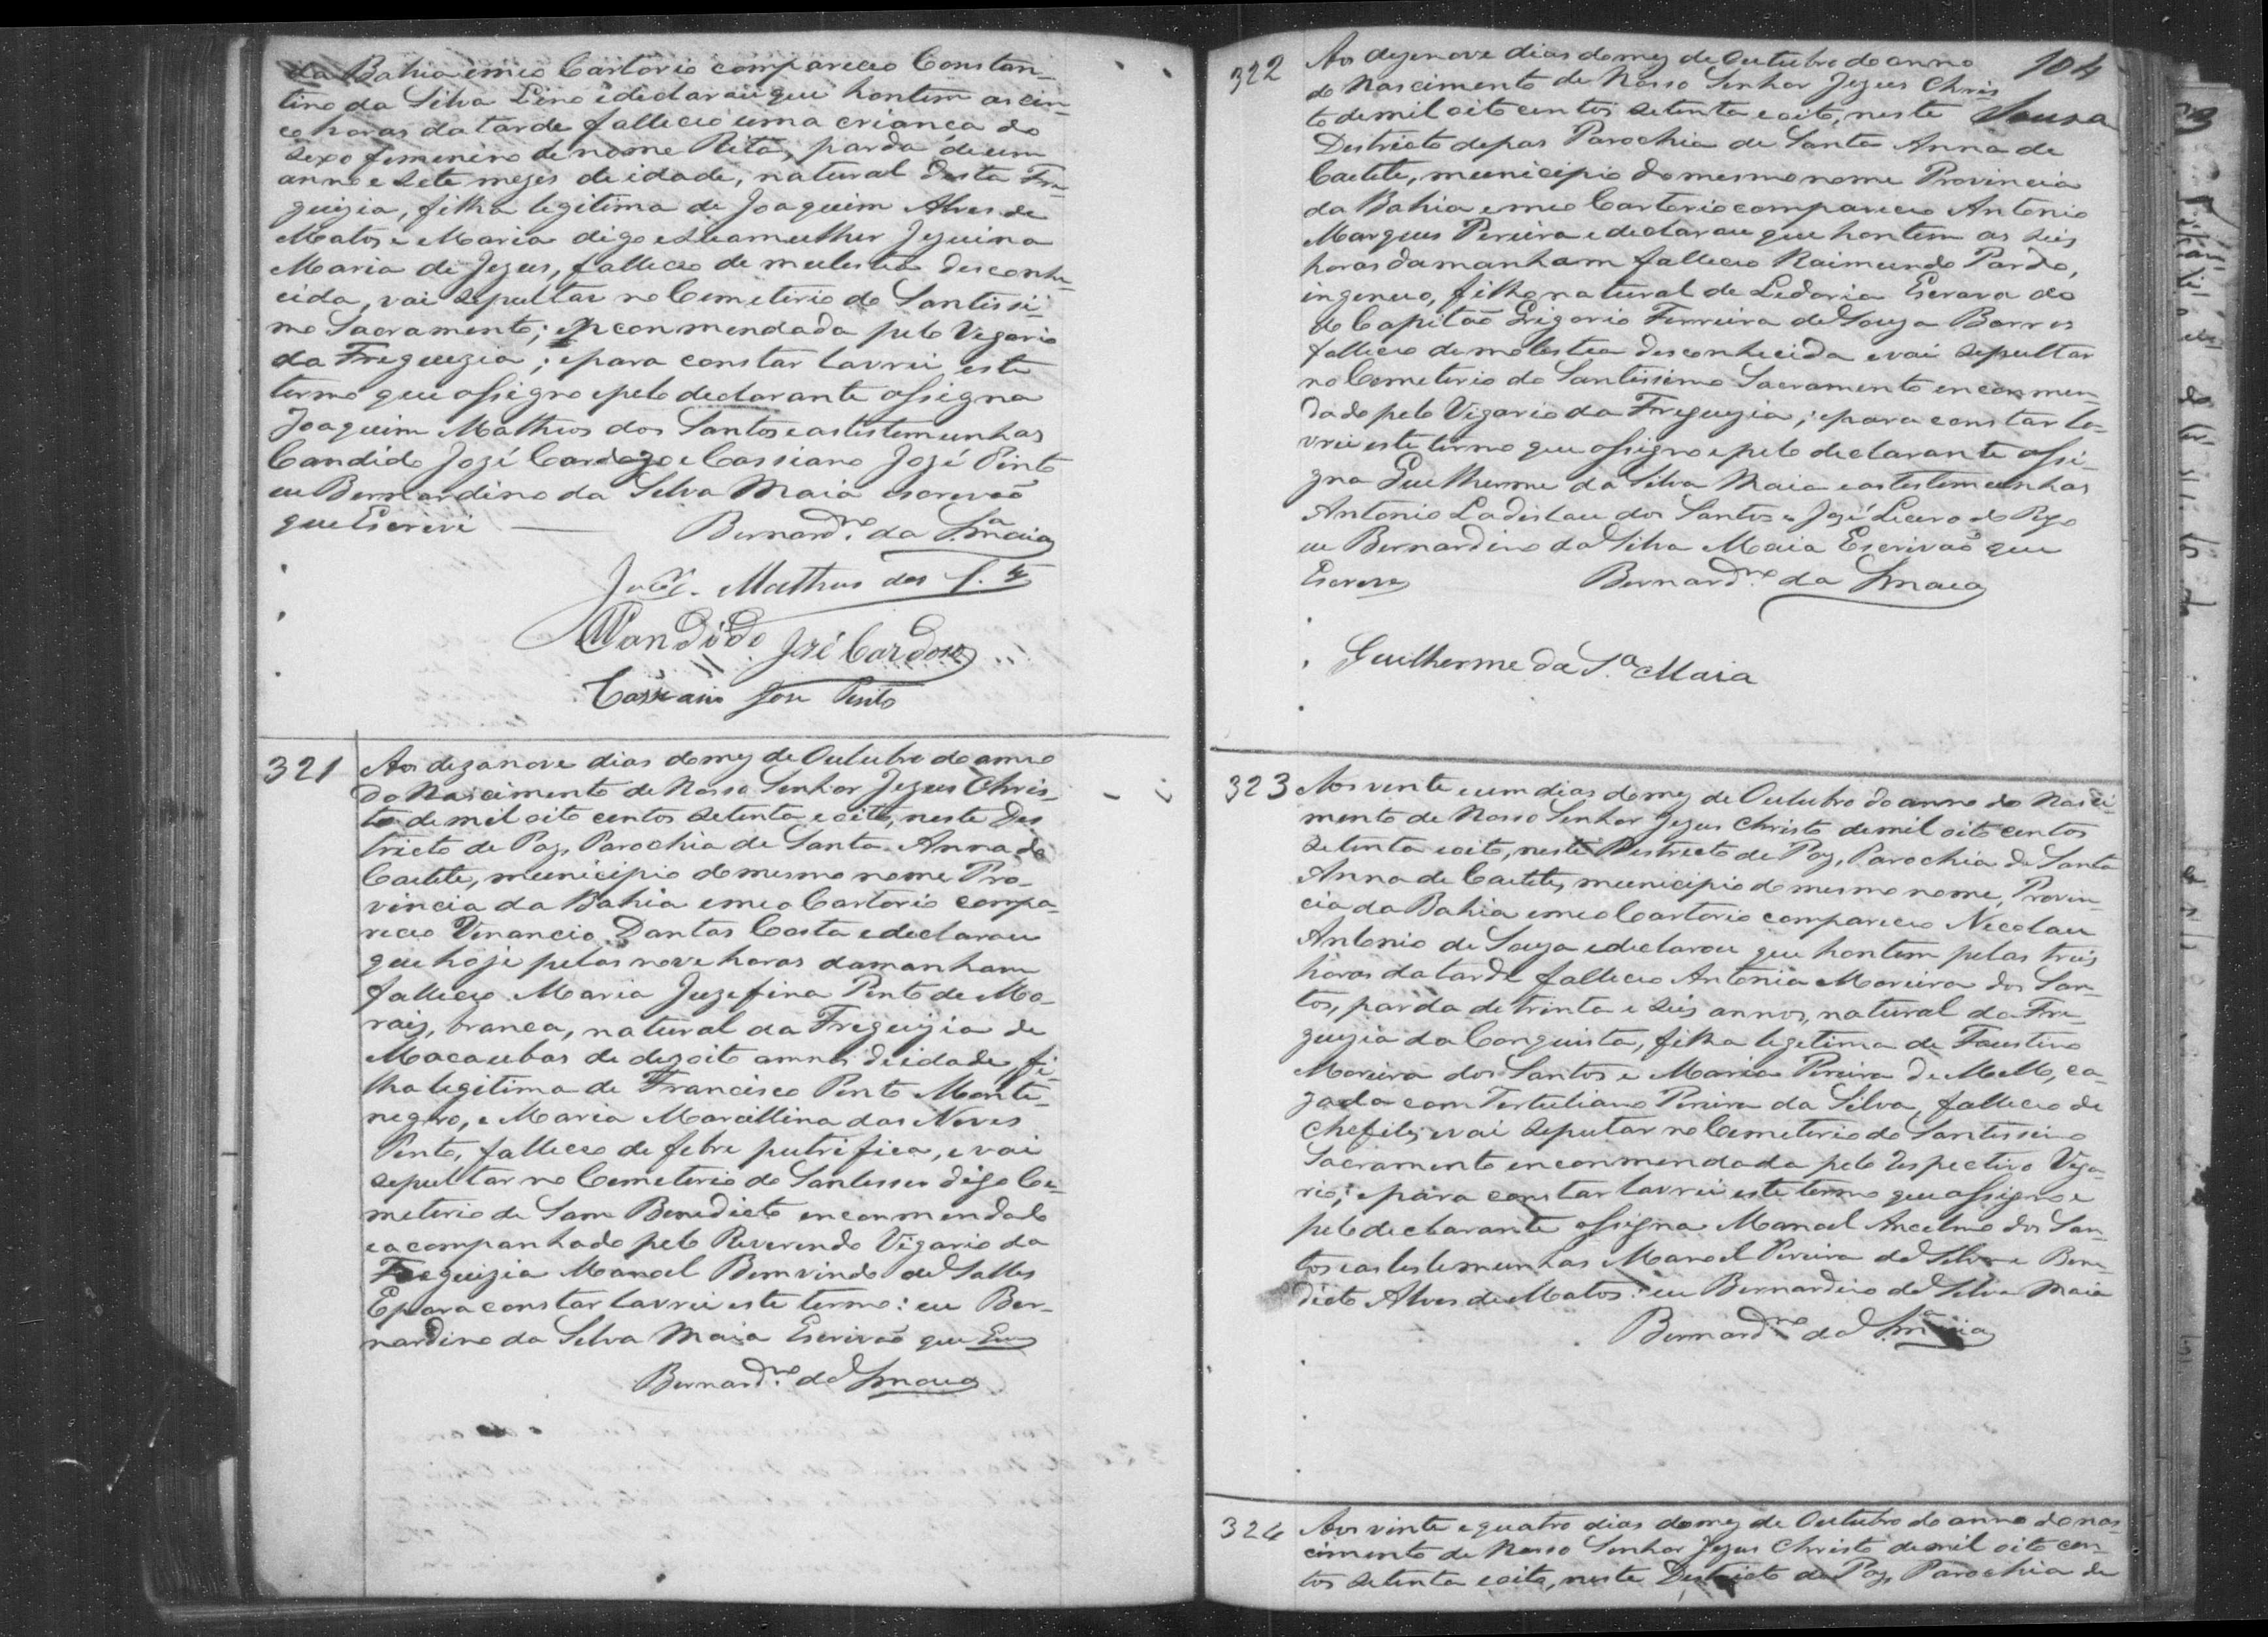 da Bahia e meo Cartorio compareceo Constan-
tino da Silva Lino e declarau que hontem as cin-
co horas da tarde falleceo uma crianca do
sexo femenino de nome Rita, parda de um
anno e sete mezes de idade, natural desta Fre-
guizia, filha legitima de Joaquim Alves de
Matos e Maria digo e sua mulher Jezuina
Maria de Jezus, falleceo de mulestia desconhe-
cida, vai sepultar no Cemeterio do Santissi-
mo Sacramento; enconmendada pelo Vegario
da Freguezia; e para constar lavrei este
termo que assigno e pelo declarante assigna
Joaquim Matheos dos Santos e as testemunhas
Candido Jozé Cardozo e Cassiano Jozé Pinto
eu Bernardino da Silva Maia escrevaõ
que Escrevi Bernard.no da S.a Maia
Matheus dos S.tos
Candido José Cardoso
Cassiano Jose Pinto
321 Aos dezanove dias do mez de Outubro do anno
do Nascimento de Nosso Senhor Jezus Chris-
to de mil oito centos setenta e oito, neste Des
tricto de Paz, Parochia de Santa Anna de
Caetete, municipio do mesmo nome Pro-
vincia da Bahia e meo Cartorio compa-
receo Venancio Dantas Costa e declarau
que hoje pelas nove horas da manham
falleceo Maria Juzefina Pinto de Mo-
rais, branca, natural da Freguizia de
Macaubas de dezoito annos de idade, fi-
lha legitima de Francisco Pinto Monte-
negro, e Maria Marcillina das Neves
Pinto, falleceo de febre putrifica, e vai
sepultar no Cemeterio do Santissemo digo Ce-
meterio de Sam Benedicto enconmendado
e acompanhado pelo Reverendo Vigario da
Freguizia Manoel Bemvindo de Salles
E para constar lavrei este termo: eu Ber-
nardino da Silva Maia Escrivaõ que
Bernard.no da S Maia
104
Sousa
322 Aos dezenove dias do mez de Outubro do anno
do Nascimento de Nosso Senhor Jezus Chris-
to de mil oito centos setenta e oito, neste
Destricto de pas Parochia de Santa Anna de
Caetete, municipio do mesmo nome Provincia
da Bahia e meo Cartorio compareceo Antonio
Marques Pereira e declarau que hontem as seis
horas da manham falleceo Raimundo Pardo,
ingenuo, filho natural de Ledoria Escrava do
do Capitaõ Grigorio Ferreira de Souza Barros
falleceo de molestia desconhecida e vai sepultar
no Cemeterio do Santissimo Sacramento enconmen-
dado pelo Vigario da Freguezia; e para constar la-
vrei este termo que assigno e pelo declarante assi-
gna Guilherme da Silva Maia e as testemunhas
Antonio Ladislau dos Santos e Jozé Lucro do Rego
eu Bernardino da Silva Maia Escrivaõ que
Escrevi Bernard.no da S Maia
Guilherme da S.a Maia
323 Aos vente e um dias do mez de Outubro do anno do Nasci-
mento de Nosso Senhor Jezus Christo de mil oito centos
setenta e oito, neste Destricto de Paz, Parochia de Santa
Anna de Caetete, municipio do mesmo nome, Provin-
cia da Bahia e meo Cartorio compareceo Necolau
Antonio de Souza e declarou que hontem pelas tres
horas da tarde falleceo Antonia Moreira dos San-
tos, parda de trinta e seis annos, natural da Fre-
guezia da Conquista, filha legetima de Faustino
Moreira dos Santos e Maria Pereira de Mello, ca-
zada com Tertuliano Pereira da Silva, falleceo de
e vai sepultar no Cemeterio do Santissimo
Sacramento enconmendada pelo respectivo Vega-
rio; e para constar lavrei este termo que assigno e
pelo declarante assigna Manoel Ancelmo dos San-
tos e as testemunhas Manoel Pereira da Silva e Bene-
dicto Alves de Matos: eu Bernardino da Silva Maia
Bernard.no da S.a Maia
324 Aos vinte e quatro dias do mez de Outubro do anno do nas-
cimento de Nosso Senhor Jezus Christo de mil oito cen-
tos setenta e oito, neste Destricto de Paz, Parochia de